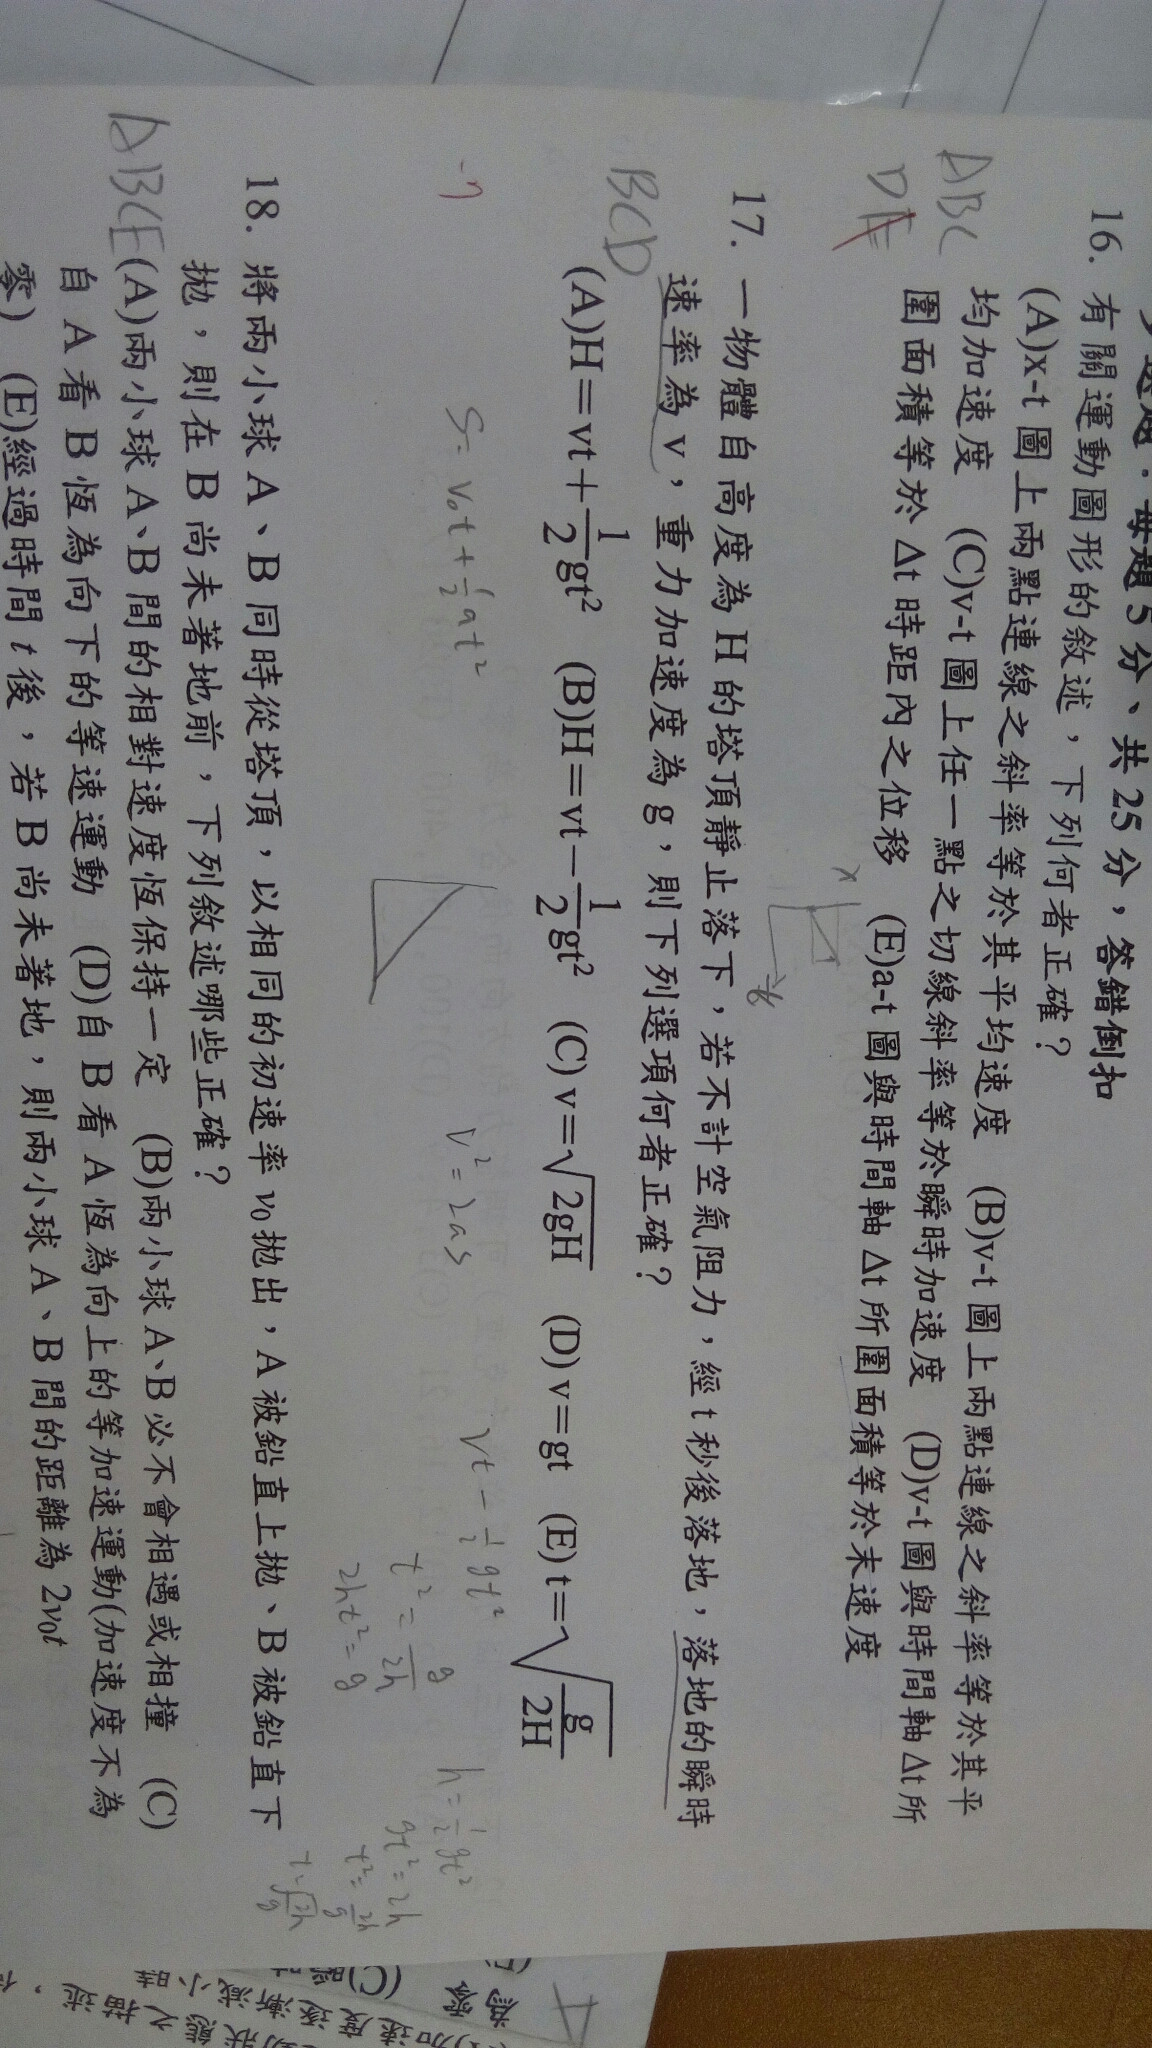 多選題：每題5分、共25分，答錯倒扣
16. 有關運動圖形的敘述，下列何者正確？
(A)x-t圖上兩點連線之斜率等於其平均速度 (B)v-t圖上兩點連線之斜率等於其平
ABC
均加速度 (C)v-t圖上任一點之切線斜率等於瞬時加速度 (D)v-t圖與時間軸Δt所
DE
圍面積等於Δt時距內之位移 (E)a-t圖與時間軸Δt所圍面積等於末速度
x
t
17. 一物體自高度為H的塔頂靜止落下，若不計空氣阻力，經t秒後落地，落地的瞬時
速率為v，重力加速度為g，則下列選項何者正確？
BCD
(A)H=vt+1/2gt² (B)H=vt−1/2gt² (C)v=√2gH (D)v=gt (E)t=√g/2H
S=V₀t+1/2at²
V²=2as
Vt−1/2gt²
t²=g/2h
2ht²=g
h=1/2gt²
gt²=2h
t²=2h/g
t=√2h/g
18. 將兩小球A、B同時從塔頂，以相同的初速率v₀拋出，A被鉛直上拋、B被鉛直下
拋，則在B尚未著地前，下列敘述哪些正確？
ABCE
(A)兩小球A、B間的相對速度恆保持一定 (B)兩小球A、B必不會相遇或相撞 (C)
自A看B恆為向下的等速運動 (D)自B看A恆為向上的等加速運動(加速度不為
零) (E)經過時間t後，若B尚未著地，則兩小球A、B間的距離為2v₀t